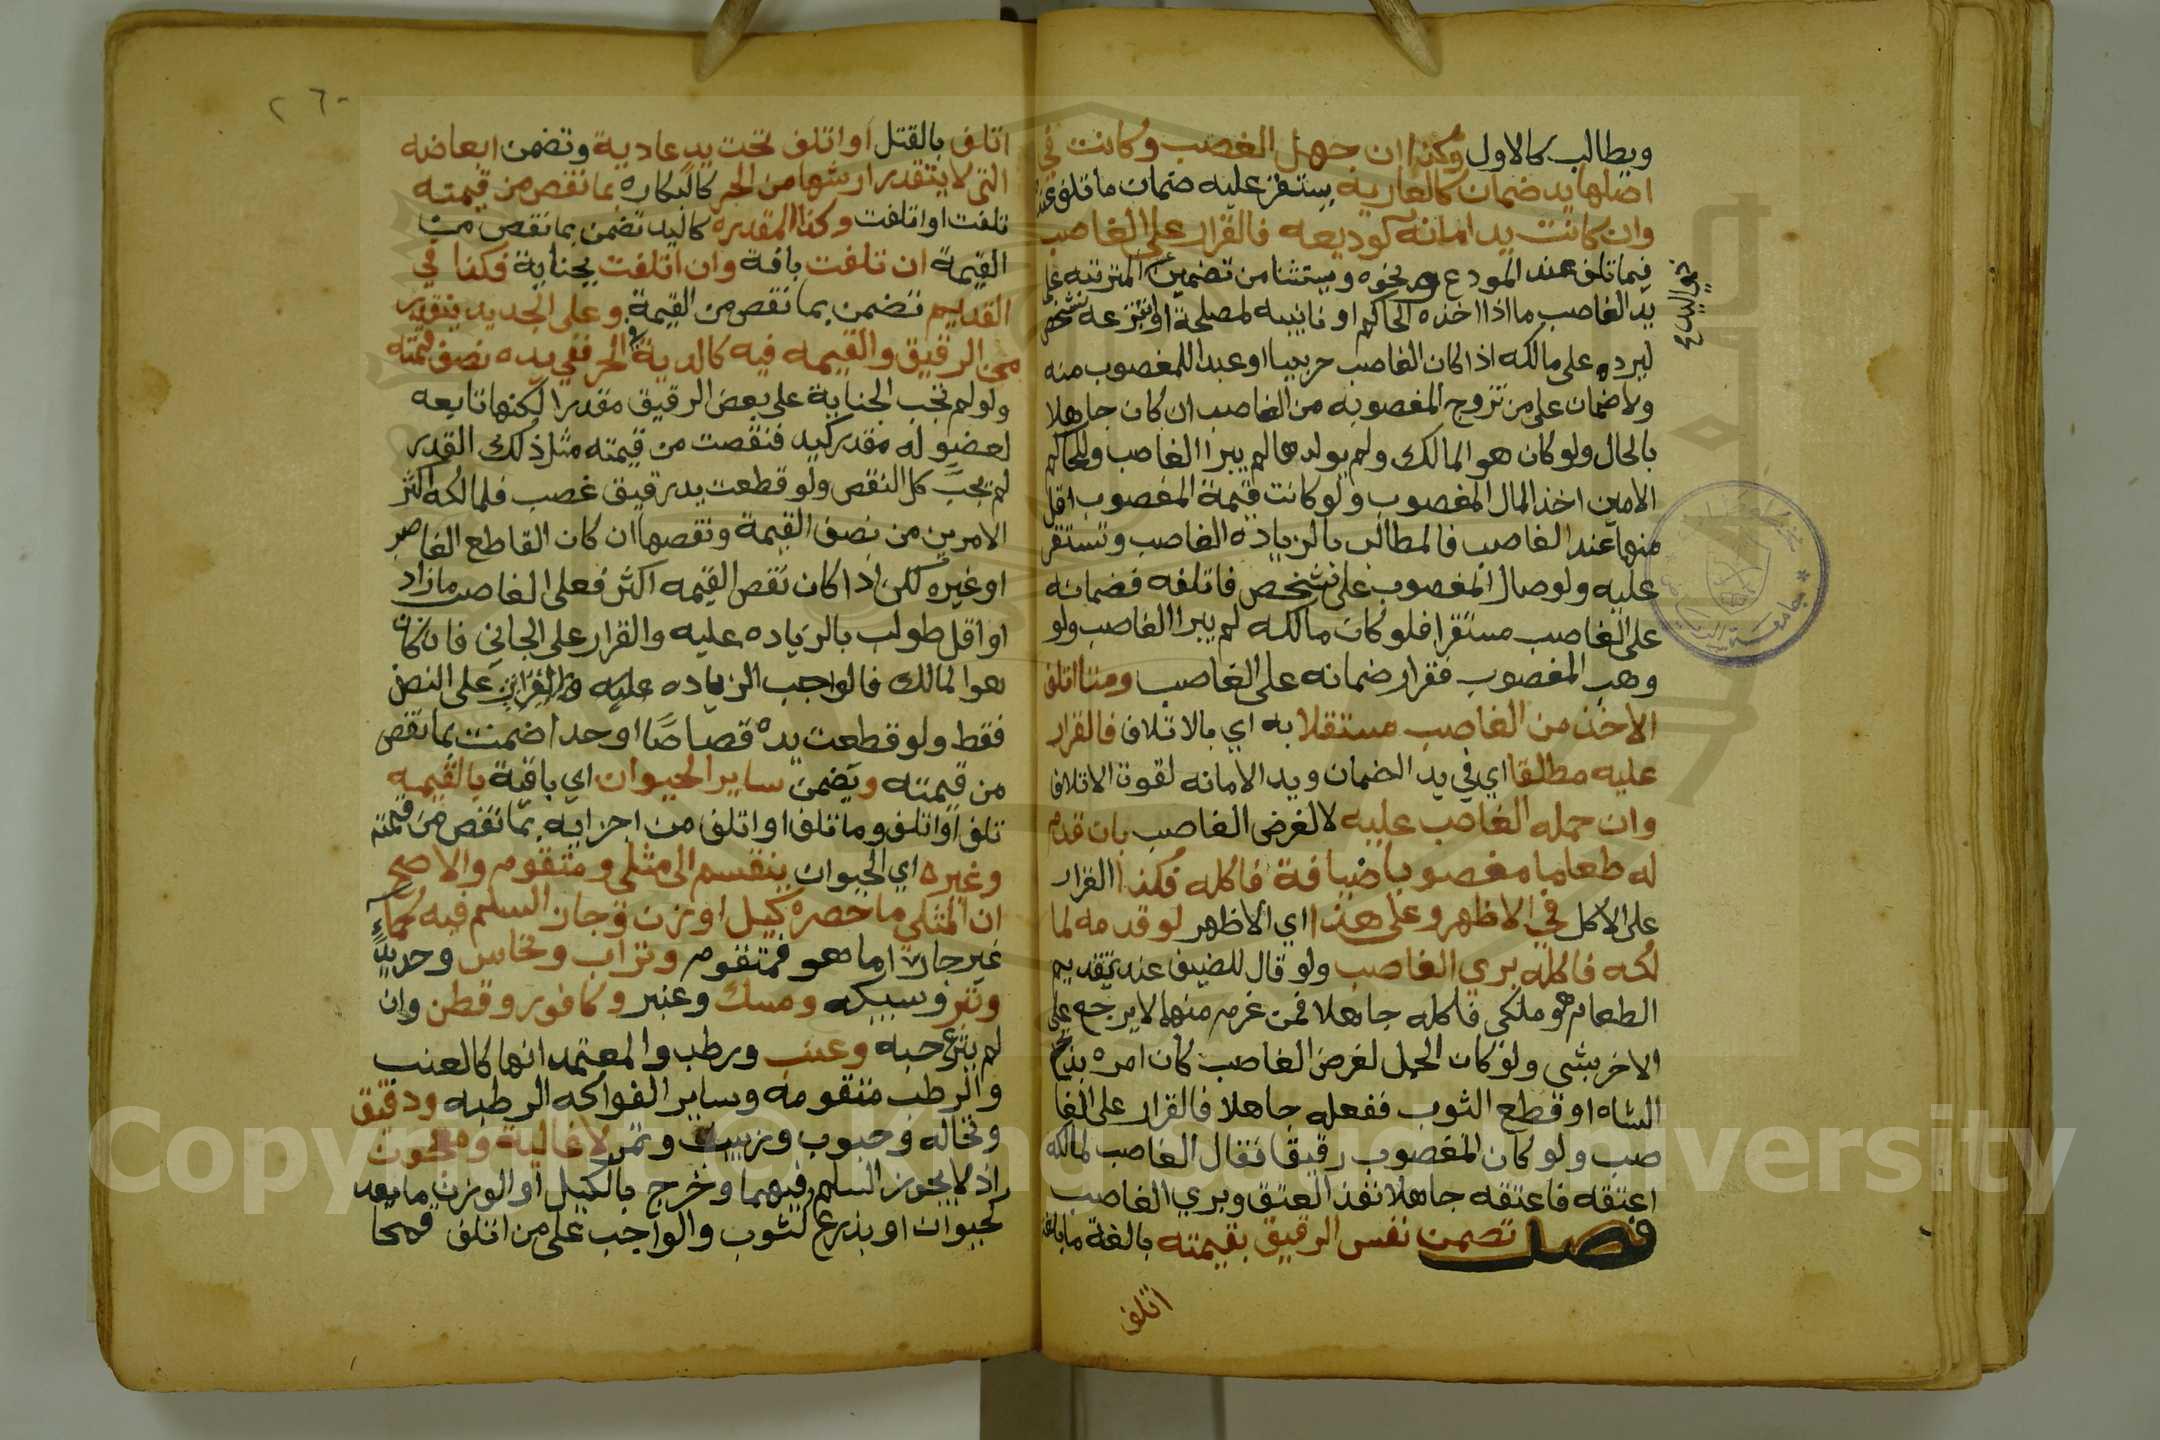 ويطالب كالاول وكذا ان جهل الغصب وكانت في
اصلها يد ضمان كالعارية يستقر عليه ضمان ما تلف عنده
وان كانت يد امانة كوديعه فالقرار على الغاصب
فيما تلف عند المودع ونحوه ويستثنا من تضمين المترتبه على
يد الغاصب ما اذا اخذه الحاكم او نايبه لمصلحة او انتزعه شخص
ليرده على مالكه اذا كان الغاصب حربيا او عبدا للمغصوب منه
ولا ضمان على من تزوج المغصوبه من الغاصب ان كان جاهلا
بالحال ولو كان هو المالك ولم يولدها لم يبرا الغاصب وللحاكم
الامين اخذ المال المغصوب ولو كانت قيمة المغصوب اقل
منها عند الغاصب فالمطالب بالزياده الغاصب وتستقر
عليه ولو صال المغصوب على شخص فاتلفه فضمانه
على الغاصب مستقرا فلو كان مالكه لم يبرا الغاصب ولو
وهب المغصوب فقرار ضمانه على الغاصب ومتا اتلف
الاخذ من الغاصب مستقلا به اي بالاتلاف فالقرار
عليه مطلقا اي في يد الضمان ويد الامانه لقوة الاتلاف
وان حمله الغاصب عليه لا لغرض الغاصب بان قدم
له طعاما مغصوبا ضيافة فاكله فكذا القرار
على الاكل في الاظهر وعلى هذا اي الاظهر لو قدمه لما
لكه فاكله بري الغاصب ولو قال للضيف عند تقديم
الطعام هو ملكي فاكله جاهلا فمن غرم منهما لا يرجع على
الاخر بشي ولو كان الحمل لغرض الغاصب كان امره بذبح
الشاه او قطع الثوب ففعله جاهلا فالقرار على الغا
صب ولو كان المغصوب رقيقا فقال الغاصب لمالكه
اعتقه فاعتقه جاهلا نفذ العتق وبري الغاصب
فصل تضمن نفس الرقيق بقيمته بالغة ما بلغت
اتلف
اتلف بالقتل او اتلف تحت يد عادية وتضمن ابعاضه
التي لا يتقدر ارشها من الحر كالبكاره بما نقص من قيمته
تلفت او اتلفت وكذا المقدره كاليد تضمن بما نقص من
القيمة ان تلفت بافة وان اتلفت بجناية فكذا في
القديم تضمن بما نقص من القيمة وعلى الجديد يتقدر
من الرقيق والقيمه فيه كالدية في الحر ففي يده نصف قيمته
ولو لم تجب الجناية على بعض الرقيق مقدرا لكنها تابعه
لعضو له مقدر كيد فنقصت من قيمته مثل ذلك القدر
لم يجب كل النقص ولو قطعت يد رقيق غصب فلمالكه اكثر
الامرين من نصف القيمة ونقصها ان كان القاطع الغاصب
او غيره لكن اذا كان نقص القيمه اكثر فعلى الغاصب ما زاد
او اقل طولب بالزياده عليه والقرار على الجاني فان كان
هو المالك فالواجب الزياده عليه على النصف
فقط ولو قطعت يده قصاصا او حدا ضمنت بما نقص
من قيمته وتضمن ساير الحيوان اي باقية بالقيمه
تلف او اتلف وما تلف او اتلف من اجزايه بما نقص من قيمته
وغيره اي الحيوان ينقسم الى مثلي ومتقوم والاصح
ان المثلي ما حصره كيل او وزن وجاز السلم فيه كماء
غير حار اما هو فمتقوم وتراب ونحاس وحديد
وتبر وسبيكه ومسك وعنبر وكافور وقطن وان
لم ينزع حبه وعنب ورطب والمعتمد انها كالعنب
والرطب متقومه وساير الفواكه الرطبه ودقيق
ونخاله وحبوب وزبيب وتمر لا غالية ومعجون
اذ لا يجوز السلم فيهما وخرج بالكيل او الوزن ما يعد
كحيوان او بذرع كثوب والواجب على من اتلف قمحا
Copyright © King Saud University